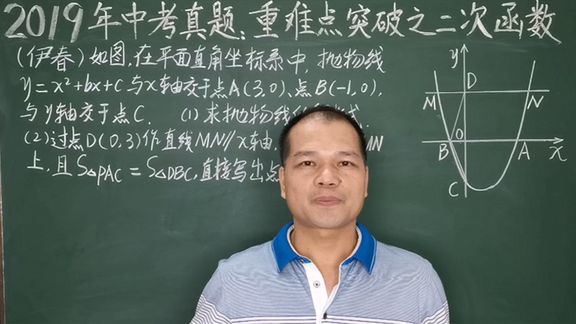 2019年中考真题:重难点突破之二次函数
(伊春)如图,在平面直角坐标系中,抛物线
y=x²+bx+c与x轴交于点A(3,0)、点B(-1,0),
与y轴交于点C. (1)求抛物线
(2)过点D(0,3)作直线MN∥x轴, MN
上,且S△PAC=S△DBC,直接写出点
y
D
M
N
O
B
A
x
C